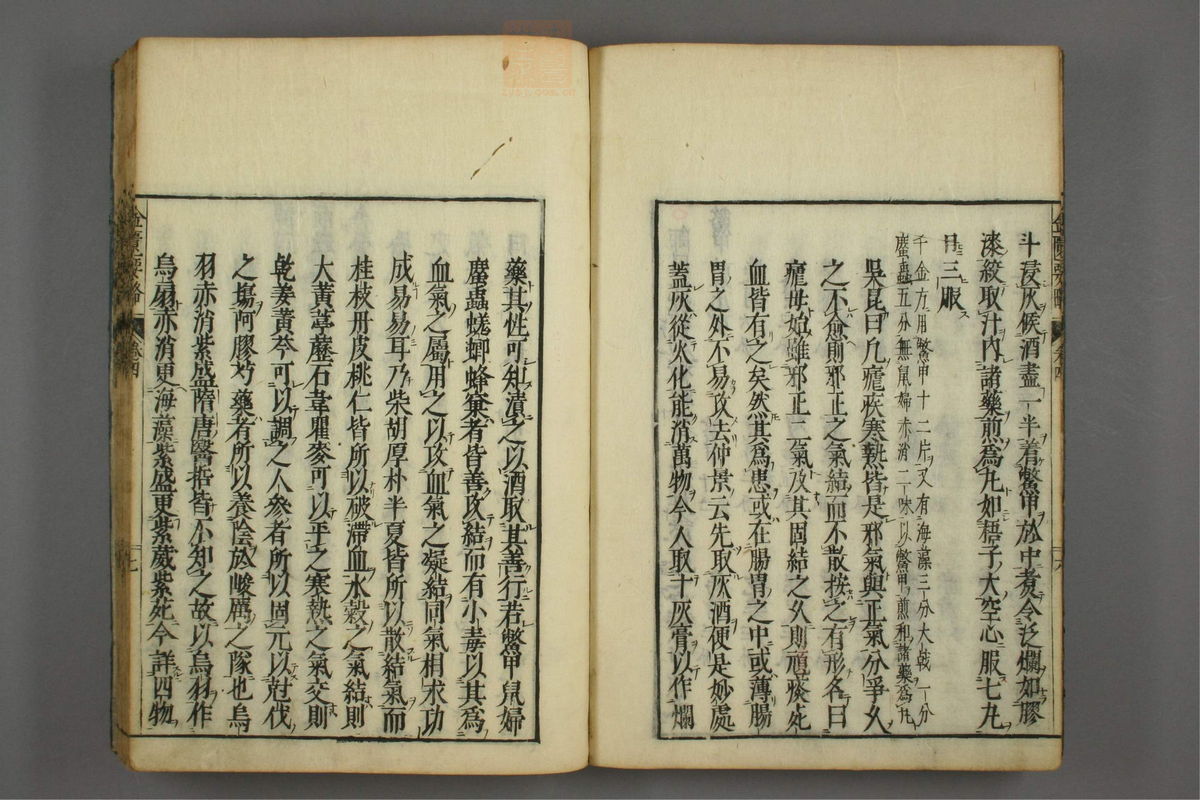 斗浸灰候酒盡一半着鱉甲於中煮令泛爛如膠
漆絞取汁內諸藥煎為丸如梧子大空心服七丸
日三服
千金方用鱉甲十二片又有海藻三分大戟一分
䗪蟲五分無鼠婦赤消二味以鱉甲煎和諸藥為丸
吳昆曰凡瘧疾寒熱皆是邪氣與正氣分爭久
之不愈則邪正之氣結而不散按之有形名曰
瘧母始雖邪正二氣及其固結之久則頑痰死
血皆有之矣然其為患或在腸胃之中或薄腸
胃之外不易攻去仲景云先取灰酒便是妙處
蓋灰從火化能消萬物今人取十灰膏以作爛
藥其性可知漬之以酒取其善行若鱉甲鼠婦
䗪蟲蜣蜋蜂窠者皆善攻結而有小毒以其為
血氣之屬用之以攻血氣之凝結同氣相求功
成易易耳乃柴胡厚朴半夏皆所以散結氣而
桂枝丹皮桃仁皆所以破滯血水穀之氣結則
大黃葶藶石韋瞿麥可以平之寒熱之氣交則
乾姜黃芩可以調之人參者所以固元以尅伐
之場阿膠芍藥者所以養陰於峻厲之隊也烏
羽赤消紫盛隋唐醫哲皆不知之故以烏羽作
烏扇赤消更海藻紫盛更紫葳紫菀今詳四物
金匱要略
卷四
金匱要略
卷四